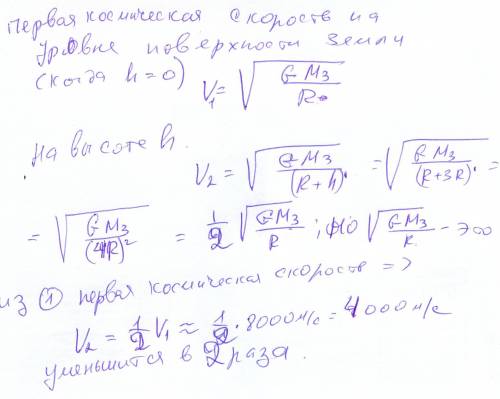 Первая космическая скорость на
уровне поверхности Земли
(когда h = 0) V₁ = √(G M₃ / R)
на высоте h. V₂ = √(G M₃ / (R + h)) = √(G M₃ / (R + 3R)) =
= √(G M₃ / (4R)²) = 1/2 √(G M₃ / R) ; но √(G M₃ / R) - это
из ① первая космическая скорость =>
V₂ = 1/2 V₁ ≈ 1/2 · 8000 м/с = 4000 м/с
уменьшится в 2 раза.